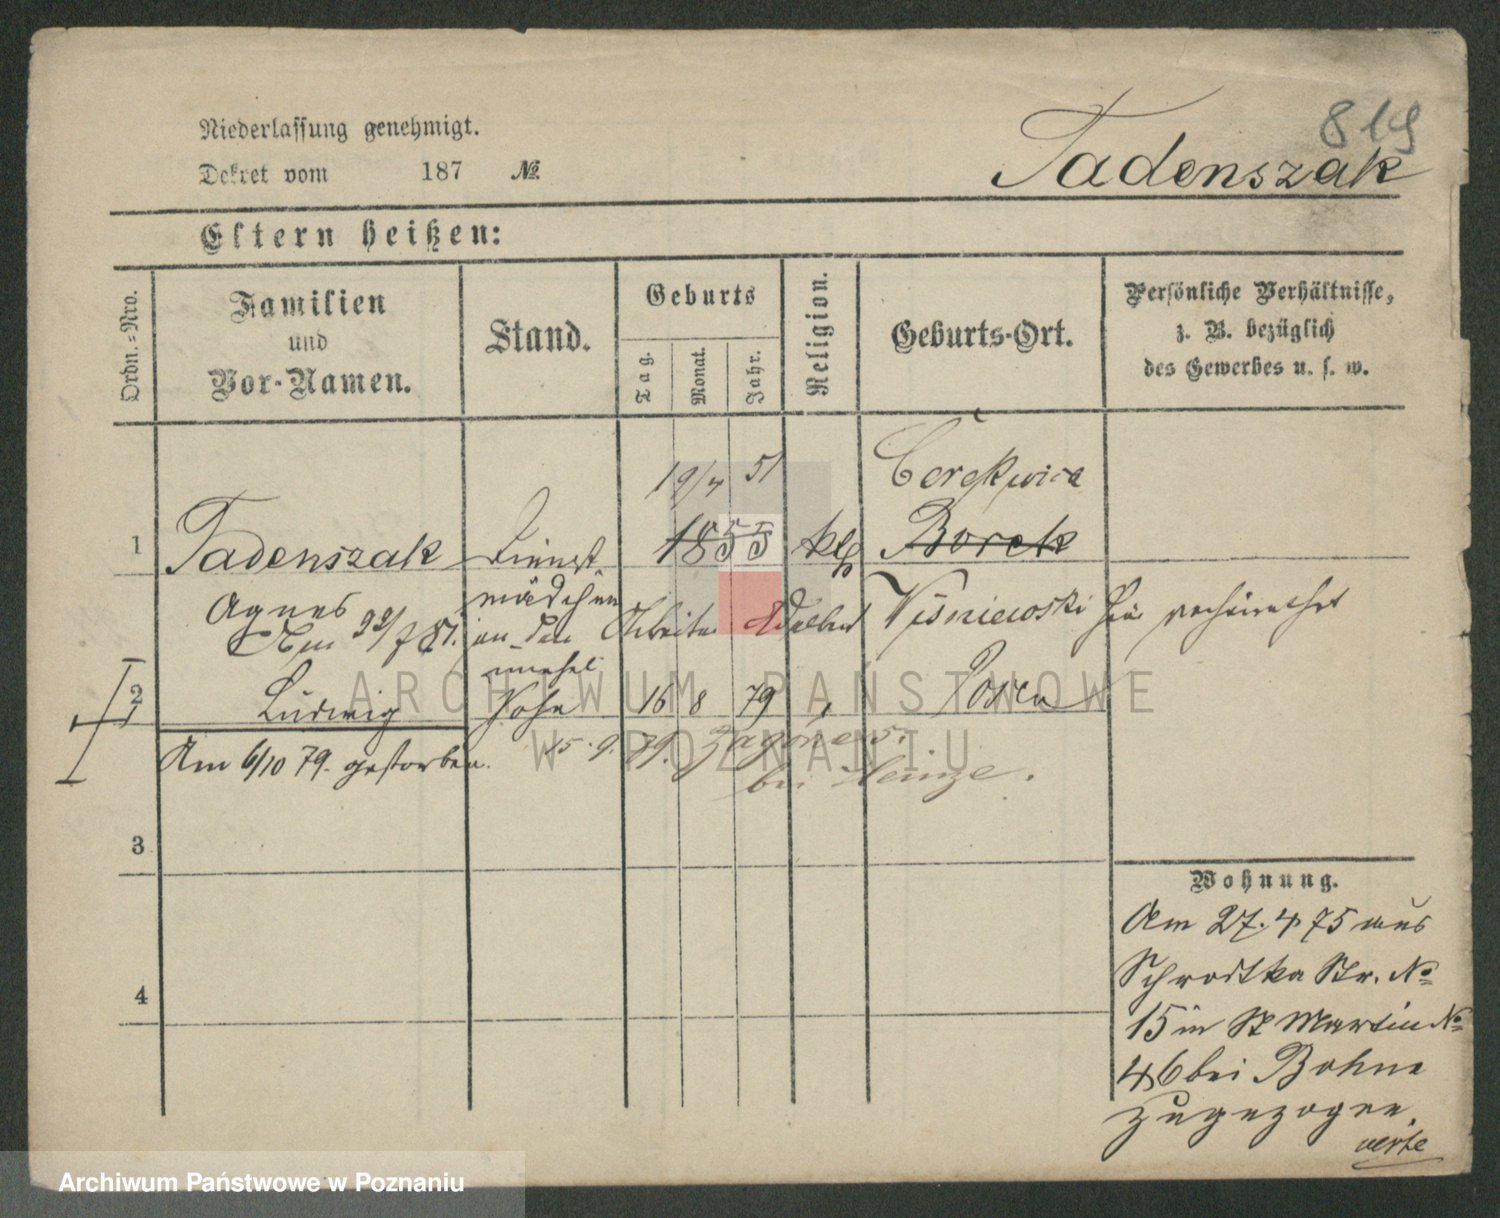 819
Niederlassung genehmigt.
Dekret vom 187 №
Tadenszak
Eltern heißen:
Ordn.-Nro.
Familien
und
Vor-Namen.
Stand.
Geburts
Tag.
Monat.
Jahr.
Religion.
Geburts-Ort.
Persönliche Verhältnisse,
z. B. bezüglich
des Gewerbes u. s. w.
19/4 51 Cerekwica
1 Tadenszak Dienst 1855 klg Borek
mädchen
Agnes
Am 22/7 81. an den Arbeiter Adalbert Wisniewski hier verheirathet
unehel
2 Ludwig Sohn 16 8 79 " Posen
Am 6/10 79. gestorben.
15.9.79.
bei Heinze.
3
4
Wohnung.
Am 27.4 75 aus
Schrodka Str. No
15 in St Martin No
46 bei Bohne
zugezogen.
verte
ARCHIWUM PAŃSTWOWE
W POZNANIU
Archiwum Państwowe w Poznaniu